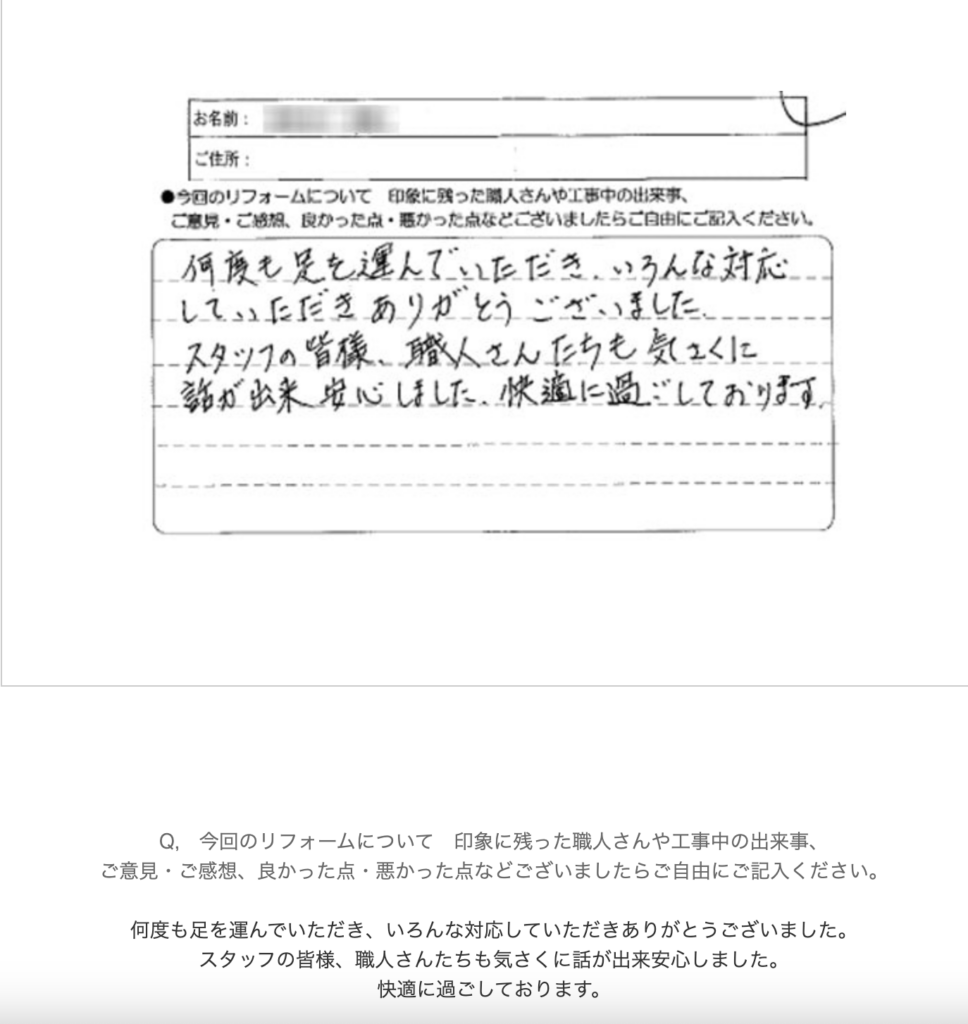 お名前：
ご住所：
●今回のリフォームについて　印象に残った職人さんや工事中の出来事、
ご意見・ご感想、良かった点・悪かった点などございましたらご自由にご記入ください。
何度も足を運んでいただき、いろんな対応
していただきありがとうございました。
スタッフの皆様、職人さんたちも気さくに
話が出来安心しました。快適に過ごしております。
Q,　今回のリフォームについて　印象に残った職人さんや工事中の出来事、
ご意見・ご感想、良かった点・悪かった点などございましたらご自由にご記入ください。
何度も足を運んでいただき、いろんな対応していただきありがとうございました。
スタッフの皆様、職人さんたちも気さくに話が出来安心しました。
快適に過ごしております。